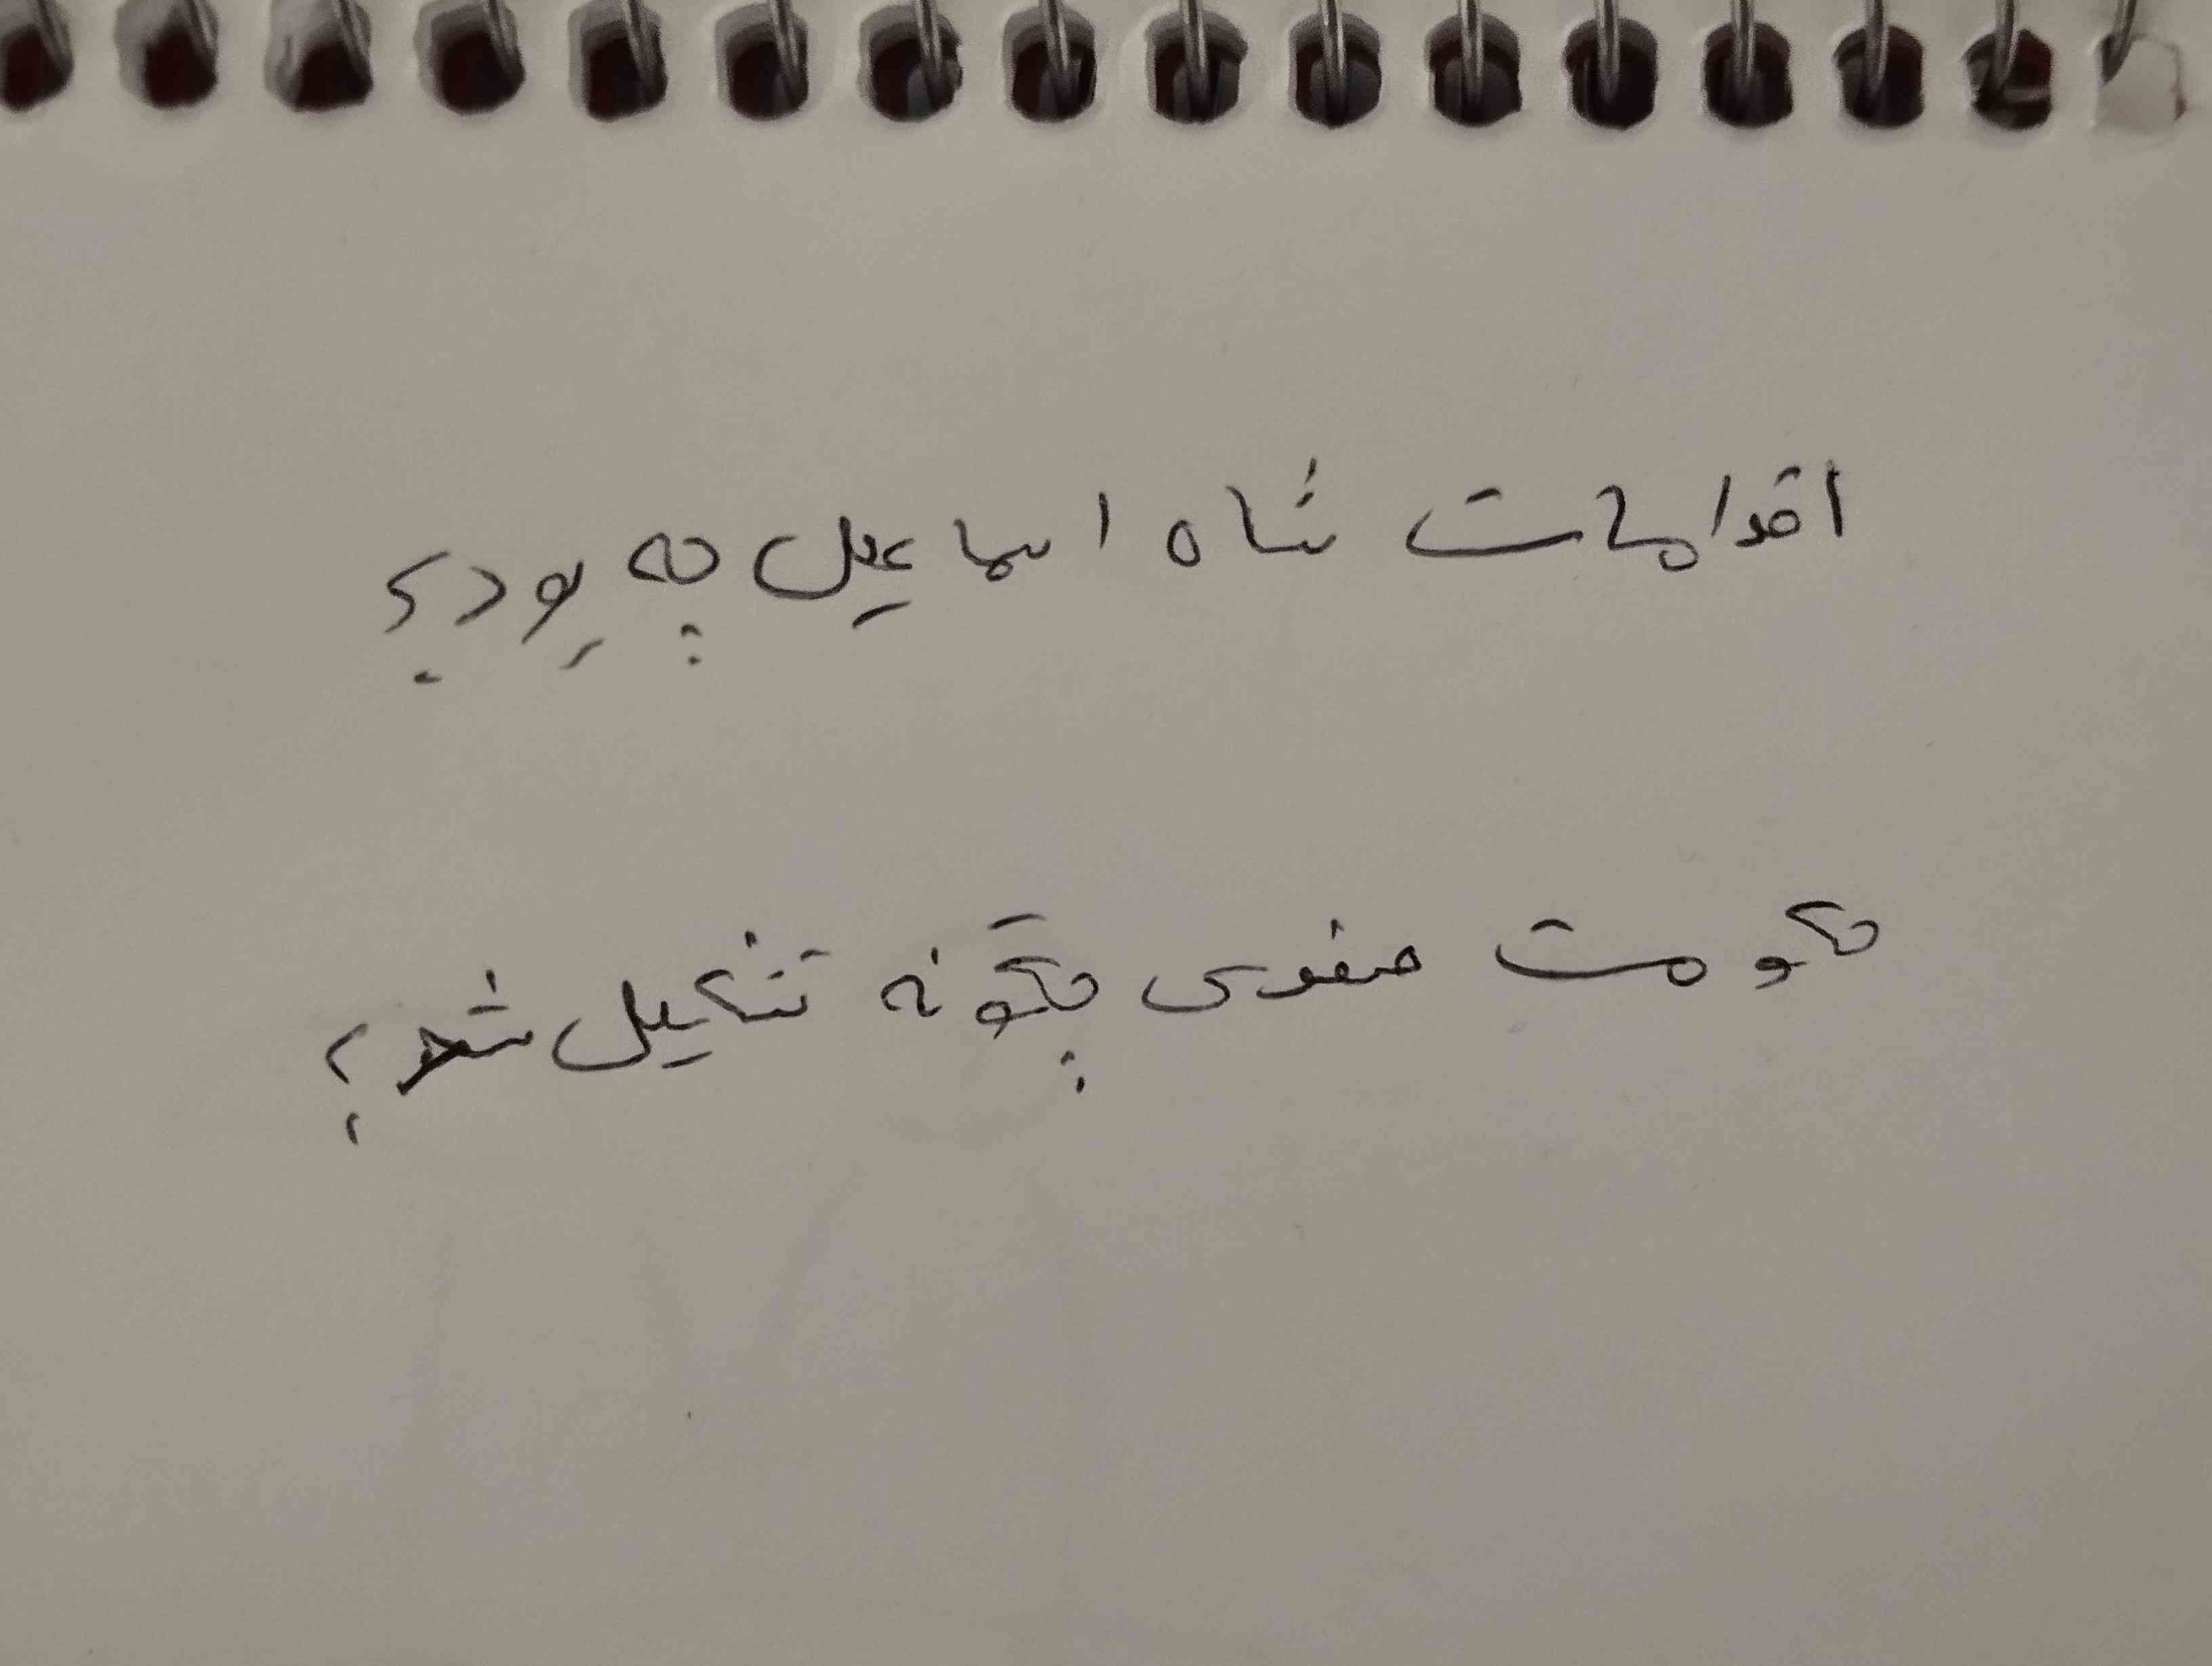 اقدامات شاه اسماعیل چه بود؟
حکومت صفوی چگونه تشکیل شد؟